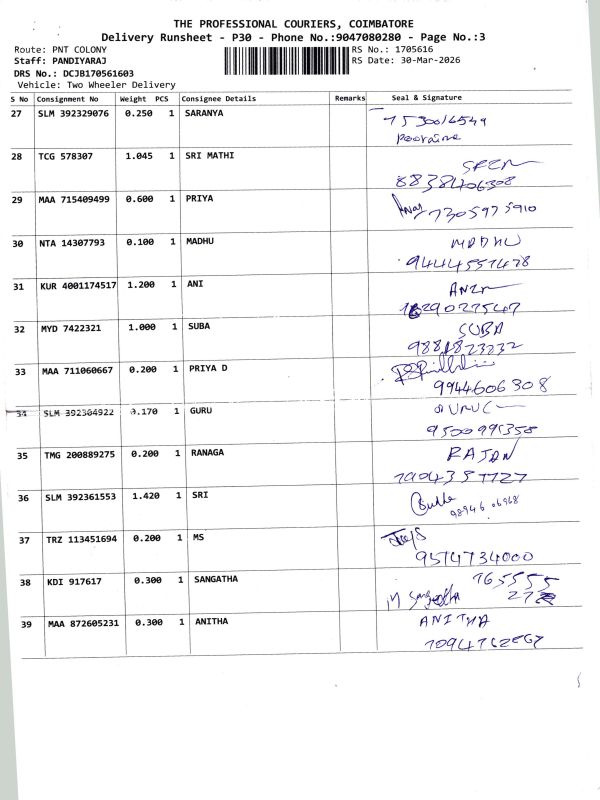 THE PROFESSIONAL COURIERS, COIMBATORE
Delivery Runsheet - P30 - Phone No.:9047080280 - Page No.:3
Route: PNT COLONY
RS No.: 1705616
Staff: PANDIYARAJ
RS Date: 30-Mar-2026
DRS No.: DCJB170561603
Vehicle: Two Wheeler Delivery
S No Consignment No Weight PCS Consignee Details Remarks Seal & Signature
27 SLM 392329076 0.250 1 SARANYA
28 TCG 578307 1.045 1 SRI MATHI
8838406308
29 MAA 715409499 0.600 1 PRIYA
7305975910
30 NTA 14307793 0.100 1 MADHU
MADHU
9444551478
31 KUR 4001174517 1.200 1 ANI
32 MYD 7422321 1.000 1 SUBA
SUBA
33 MAA 711060667 0.200 1 PRIYA D
9944606308
34 SLM 392304922 0.170 1 GURU
9500991358
35 TMG 200889275 0.200 1 RANAGA
RAJAN
36 SLM 392361553 1.420 1 SRI
98946 06968
37 TRZ 113451694 0.200 1 MS
9514734000
38 KDI 917617 0.300 1 SANGATHA
765555
39 MAA 872605231 0.300 1 ANITHA
ANITHA